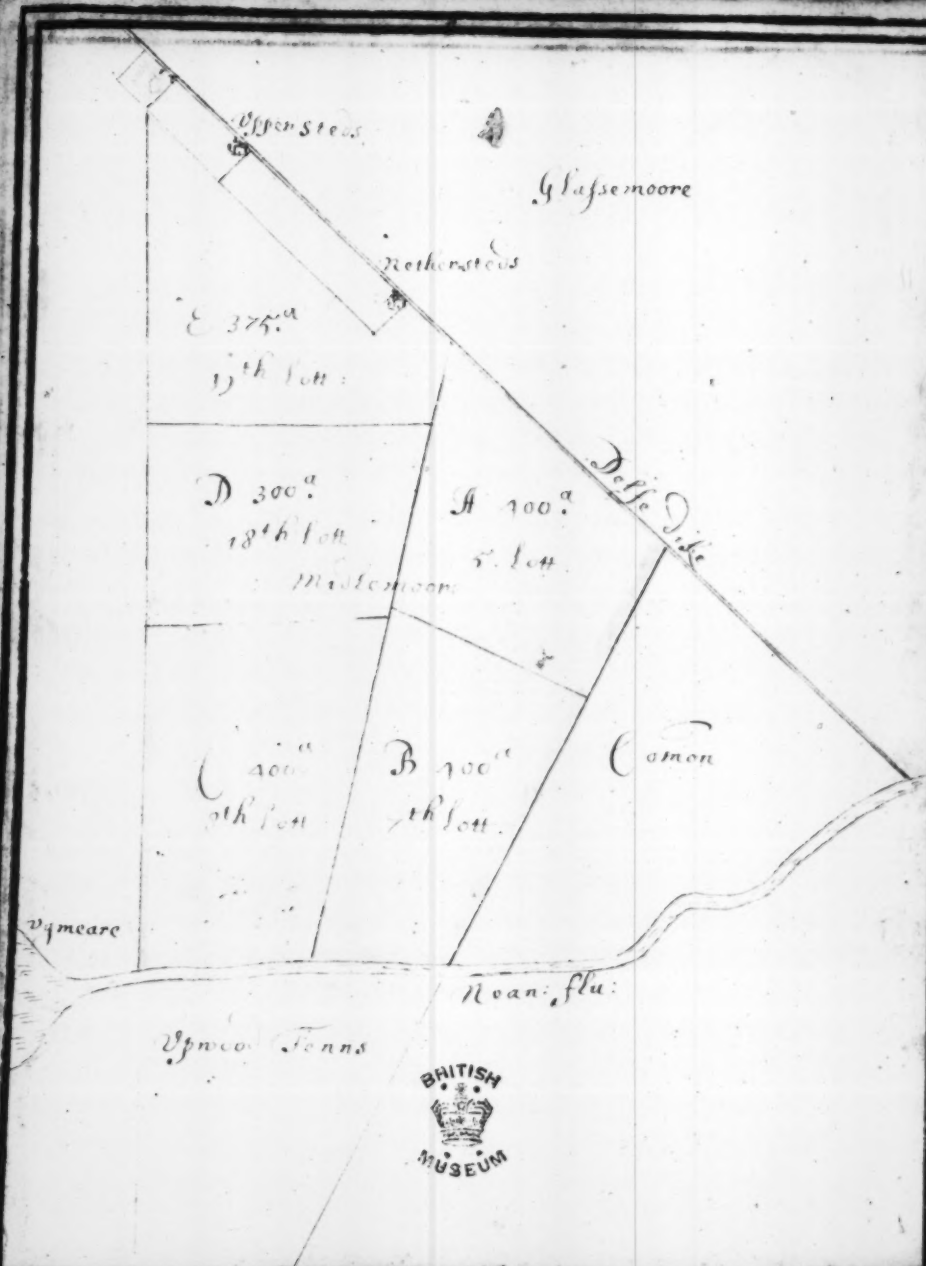 Uppersteds
Glassemoore
Nethersteds
E 375.a
17th Lott:
Delfe Dike
D 300a.
18th Lott
A 400a.
5. Lott
Mislemoore
Comon
C 400a
9th Lott
B 400a
7th Lott.
Ugmeare
Noan: flu:
Upwood Fenns
BRITISH
MUSEUM